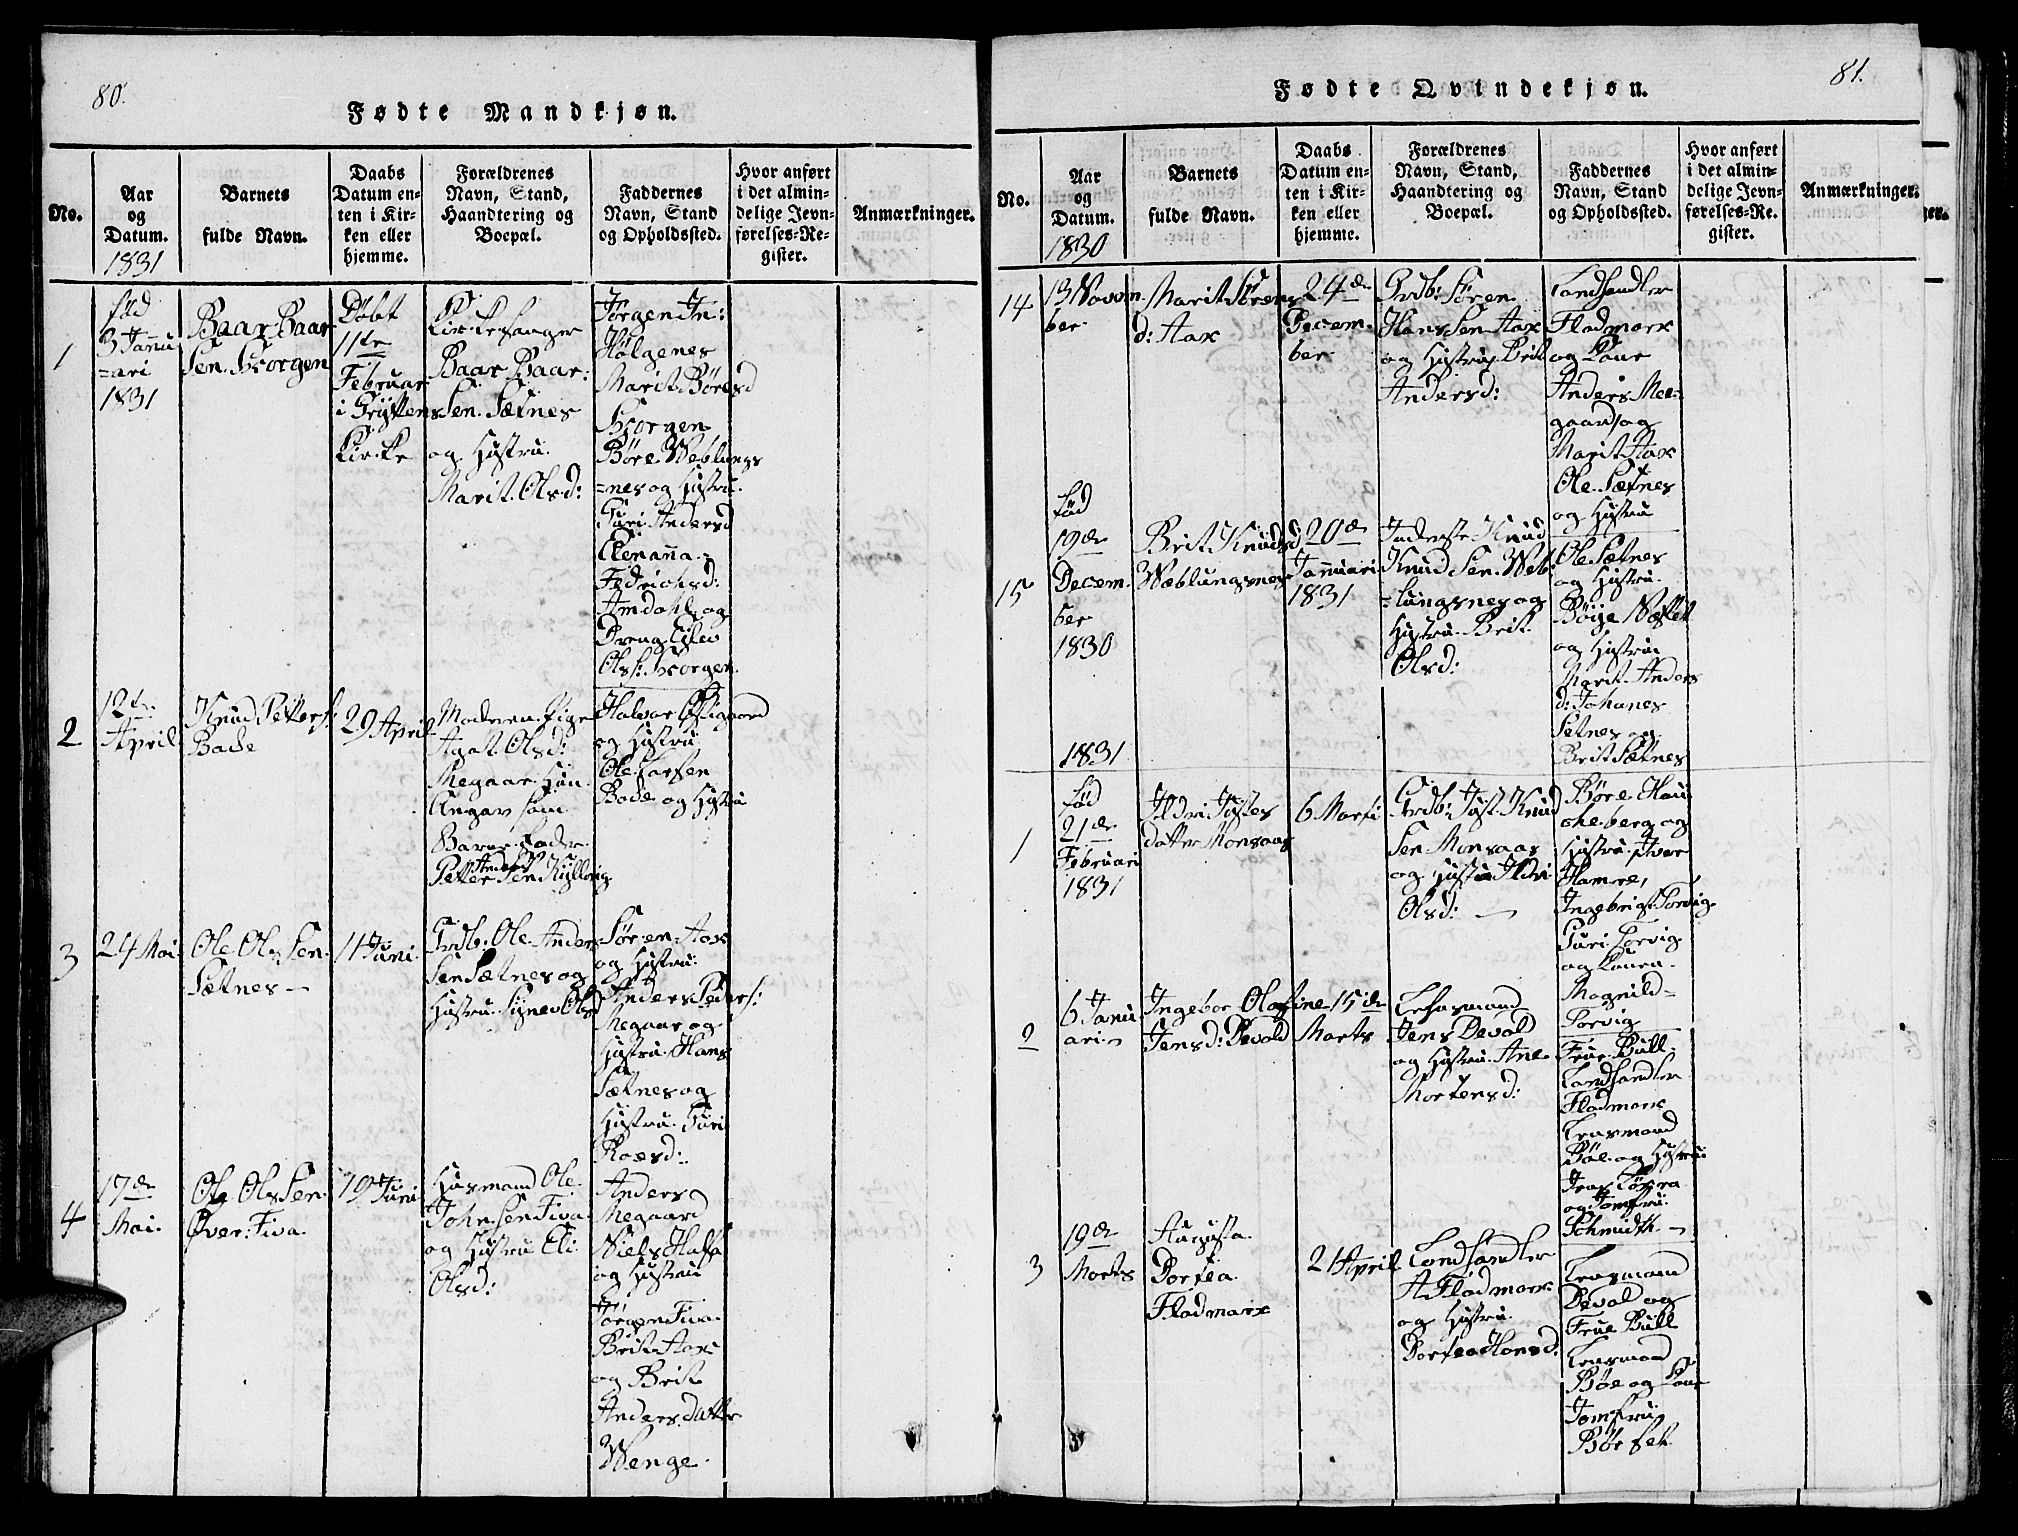 80.
Fødte Mandkjøn.
No.
Aar
og
Datum.
1831
Barnets
fulde Navn.
Daabs
Datum en-
ten i Kir-
ken eller
hjemme.
Forældrenes
Navn, Stand,
Haandtering og
Boepæl.
Faddernes
Navn, Stand
og Opholdssted.
Hvor anført
i det almin-
delige Jevn-
førelses-Re-
gister.
Anmærkninger.
1
fød
3 Janu
=ari
1831
Baar Baar
Sen. Horgen
Døbt
11te
Februar
i Gryttens
Kirke
Kirkesanger
Baar Baar:
Sen. Sætnes
og Hustru.
Marit. Olsd:
Jørgen In:
Hølgenes
Marit Børesd
Horgen
Børe Weblungs
=nes og Hustru.
Guri Andersd
Elenanna
Fedrichsd:
Amdahl og
Dreng Eilev
Olsf: Horgen.
2
12te
April
Knud Petterf:
Bade
29 April
Moderen Pige
Agat. Olsd:
Megaar. Hun
Angav som
Barne Fader
Petter Anders Sen Kylling
Halvor
og Hustru
Ole Larsen
Bade og Hustru
3
24 Mai
Ole Ols Sen.
Sætnes –
11 Juni
Grdb: Ole Anders
Sen Sætnes og
Hustru. Signe Olsd
Søren Aax
og Hustru.
Anders Peders:
Megaar og
Hustru. Hans
Sætnes og
Hustru. Guri
Roæsd:
4
17de
Mai.
Ole Ols Sen.
Øver: Fiva.
19 Juni
Husmand Ole
John Sen Fiva
og Hustru Eli
Olsd:
Anders
Megaard
Niels Halsa
og Hustru
Jørgen Fiva.
Brit Aax
og Brit
Anders datter
Wenge.
81.
Fødte Qvindekjøn.
No.
Aar
og
Datum.
1830
Barnets
fulde Navn.
Daabs
Datum en-
ten i Kir-
ken eller
hjemme.
Forældrenes
Navn, Stand,
Haandtering og
Boepæl.
Faddernes
Navn, Stand
og Opholdssted.
Hvor anført
i det almin-
delige Jevn-
førelses-Re-
gister.
Anmærkninger.
14
13 Novem
ber
Marit Sørens
d: Aax
24de
Decem-
ber
Grdb: Søren
Hans Sen Aax
og Hustru Brit
Andersd:
Landhandler
Fladmark
og Kone
Anders Me-
gaard og
Marit Aax
Ole Sætnes
og Hustru
15
fød
19de
Decem-
ber
1830
Brit Knudsd
Wæblungsnes
20de
Januari
1831
Inderste Knud
Knud Sen. Web
=lungsnes og
Hustru. Brit.
Olsd:
Ole Sætnes
og Hustru.
Bøije Næsset
og Hustru
Marit. Anders
d: Johanes
Setnes og
Brit Sætnes
1831
1
fød
21de
Februari
1831
Ildri Justes
datter Monsaas
6 Marti
Grdb: Just Knud
Sen Monsaas
og Hustru Ildri
Olsd: –
Børe Hau
cheberg og
Hustru Iver
Hamre,
Ingebrigt. Torvig.
Guri Torvig
og Konen
Magnild=
Torvig
2
6 Janu
ari
Ingebor Olosine
Jensd: Devold
15de
Marts
Lensmand
Jens Devold
og Hustru. Ane
Mortensd:
Frue Bull.
Landhandler
Fladmark
Lensmand
Bøe og Hustru
og Jomfru
Schmidth. –
3
19de
Marts
Augusta
Dortea
Fladmark
21 April
Landhandler
A. Fladmark
og Hustru.
Dortea Hansd:
Lensmand
Devold og
Frue Bull
Lensmand
Bøe og Kone
Jomfru
Børset